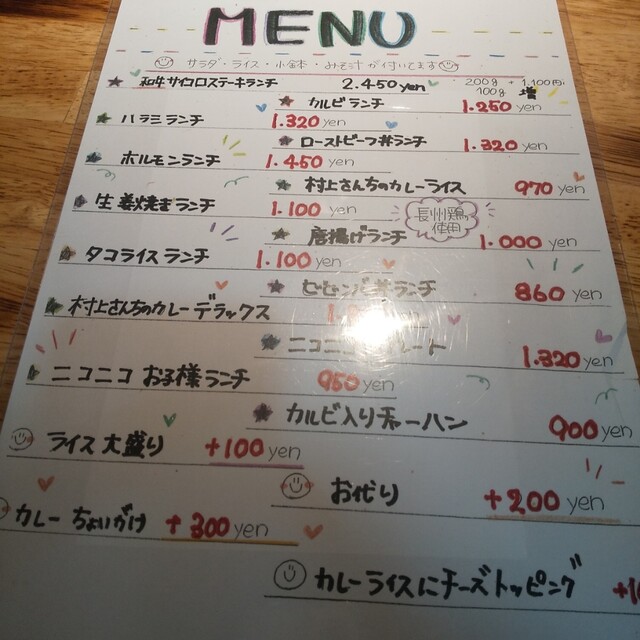 MENU
サラダ・ライス・小鉢・みそ汁が付いてます
和牛サイコロステーキランチ 2.450yen
200g +1.100円
100g 増
カルビランチ 1.250yen
ハラミランチ 1.320yen
ローストビーフ丼ランチ 1.320yen
ホルモンランチ 1.450yen
村上さんちのカレーライス 970yen
生姜焼きランチ 1.100yen
長州鶏使用
唐揚げランチ 1.000yen
タコライスランチ 1.100yen
ビビンバ丼ランチ 860yen
村上さんちのカレーデラックス
ニコニコ レート 1.320yen
ニコニコ お子様ランチ 950yen
カルビ入りチャーハン 900yen
ライス大盛り +100yen
お代り +200yen
カレーちょいがけ +300yen
カレーライスにチーズトッピング